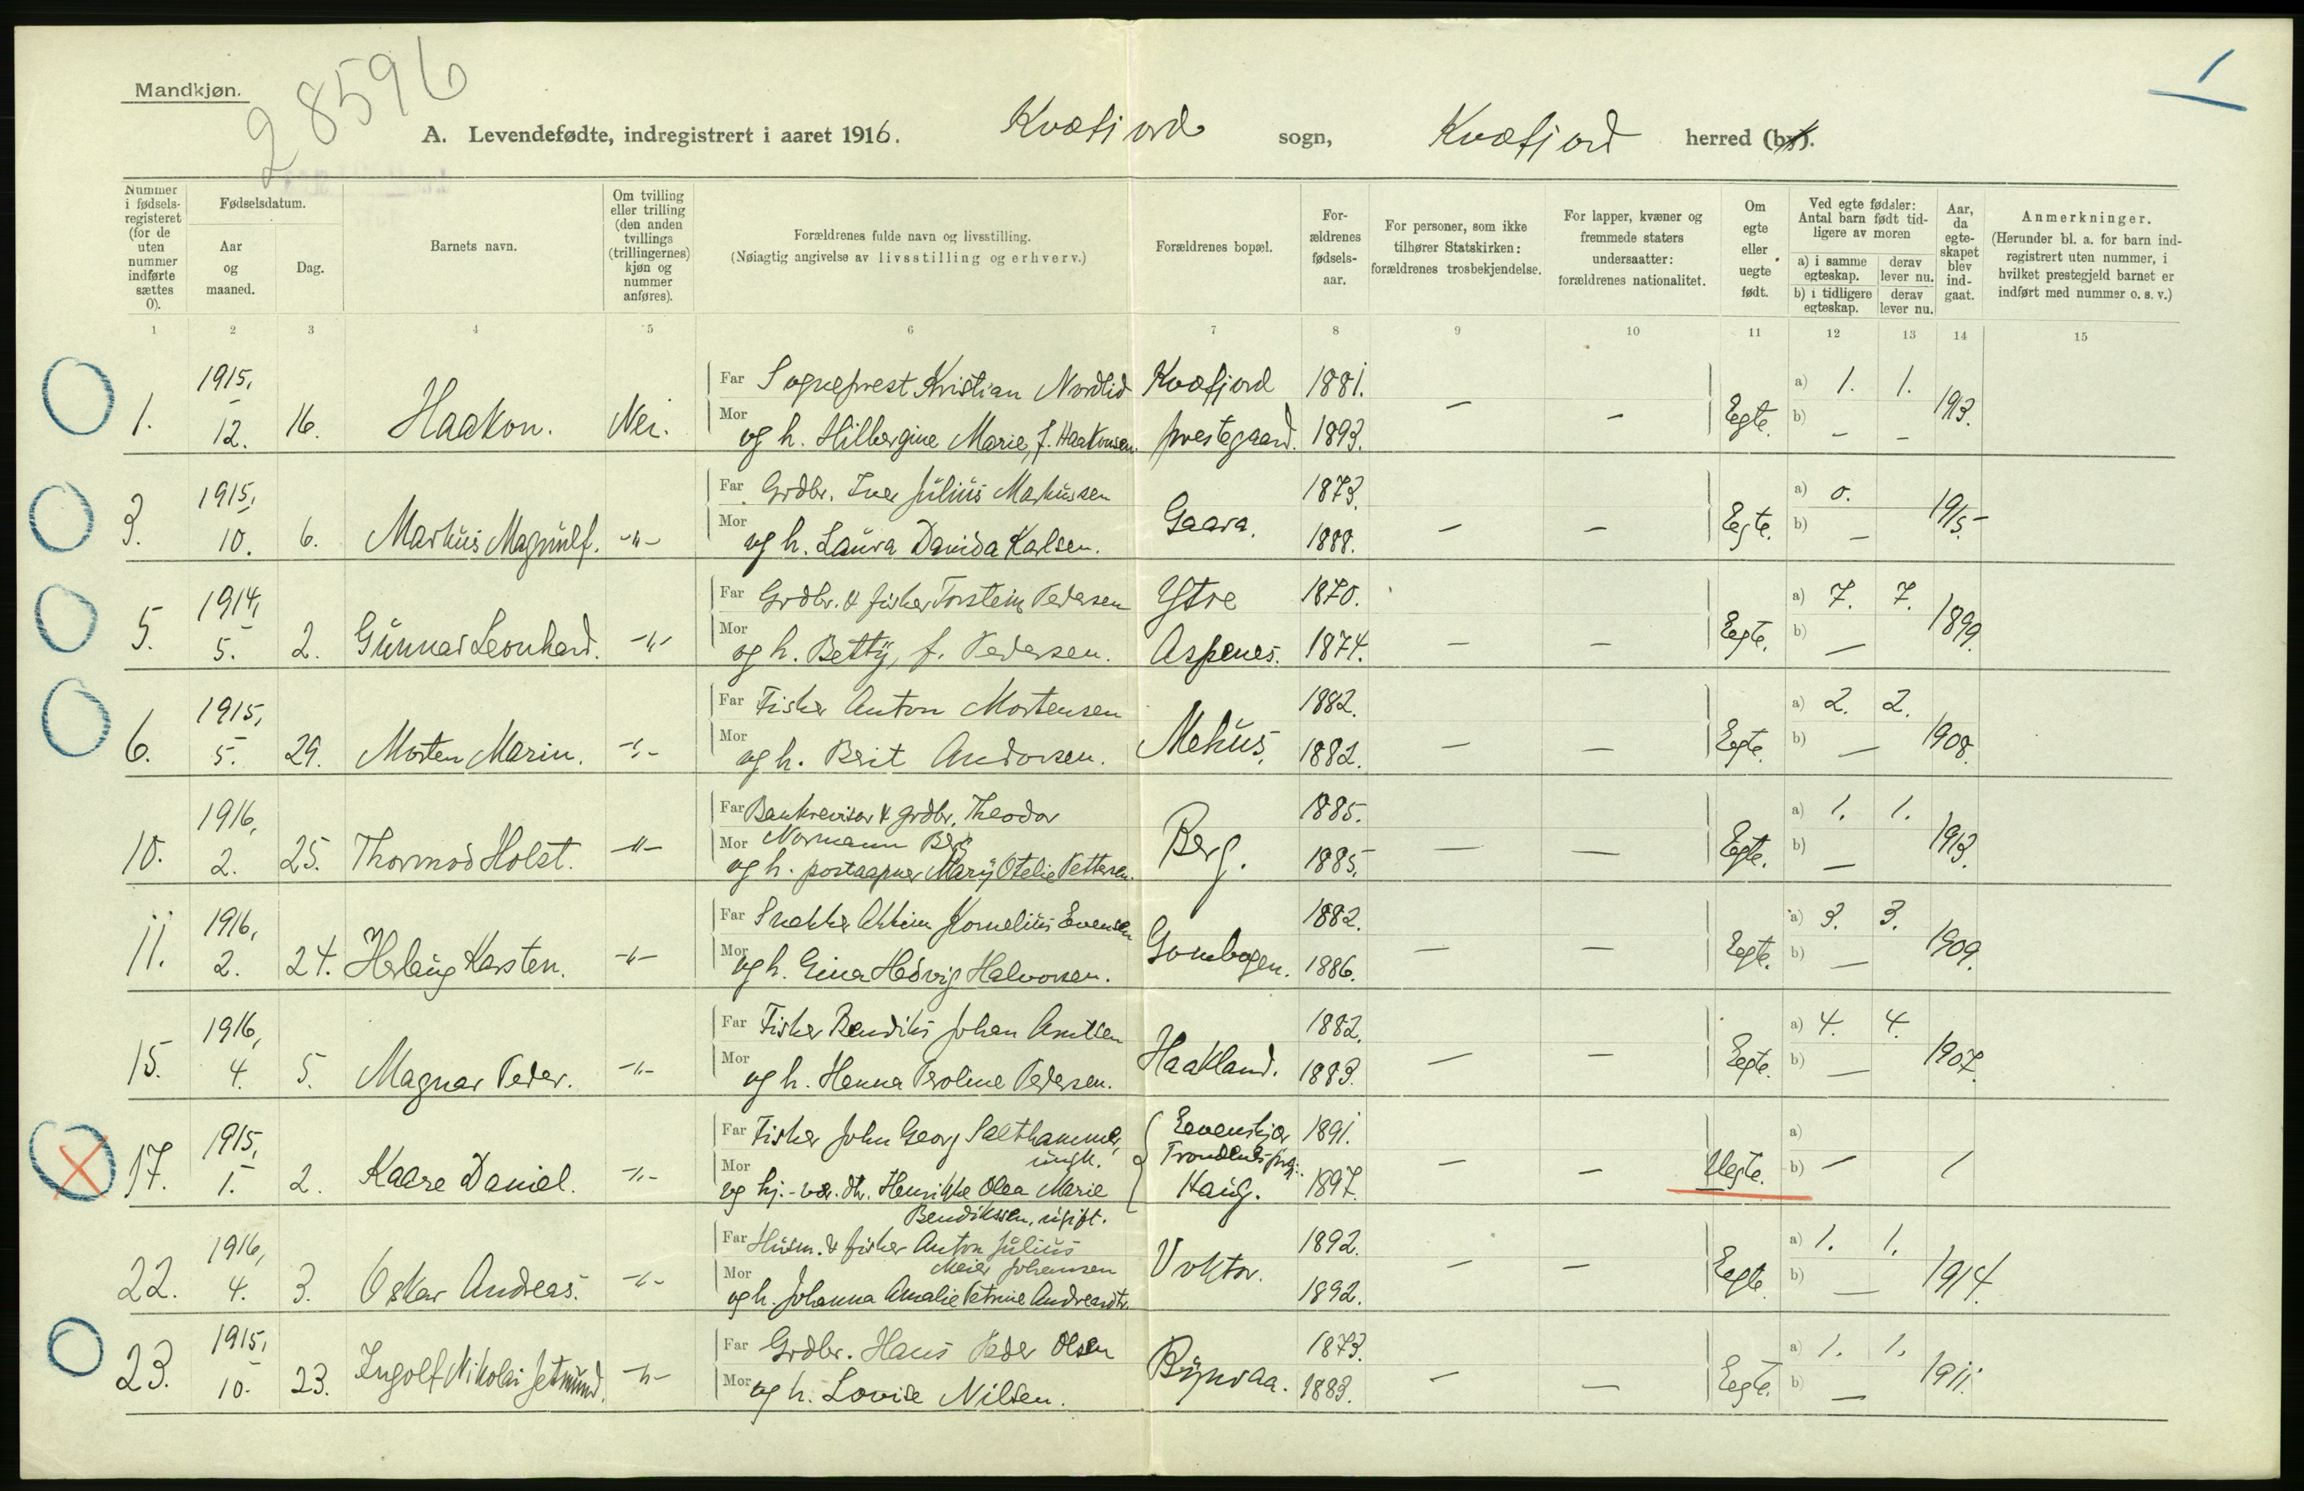 Mandkjøn.
28596
1
A. Levendefødte, indregistrert i aaret 1916. Kvæfjord sogn, Kvæfjord herred (by).
Nummer i fødsels-registeret (for de uten nummer indførte sættes 0).
Fødselsdatum.
Aar og maaned.
Dag.
Barnets navn.
Om tvilling eller trilling (den anden tvillings (trillingernes) kjøn og nummer anføres).
Forældrenes fulde navn og livsstilling.
(Nøiagtig angivelse av livsstilling og erhverv.)
Forældrenes bopæl.
For-ældrenes fødsels-aar.
For personer, som ikke tilhører Statskirken: forældrenes trosbekjendelse.
For lapper, kvæner og fremmede staters undersaatter: forældrenes nationalitet.
Om egte eller uegte født.
Ved egte fødsler: Antal barn født tid-ligere av moren
a) i samme egteskap.
derav lever nu.
b) i tidligere egteskap.
derav lever nu.
Aar, da egte-skapet blev ind-gaat.
Anmerkninger.
(Herunder bl. a. for barn ind-registrert uten nummer, i hvilket prestegjeld barnet er indført med nummer o. s. v.)
1 2 3 4 5 6 7 8 9 10 11 12 13 14 15
1915, Far Sogneprest Kristian Nordlid Kvæfjord 1881. a) 1. 1.
1. 12. 16. Haakon. Nei. Mor og h. Hilbergine Marie, f. Haakonsen. prestegaard. 1893. — — Egte. b) — — 1913.
1915, Far Grdbr. Iver Julius Markussen 1873. a) 0.
3. 10. 6. Markus Magnulf. -"- Mor og h. Laura Danida Karlsen. Gaara. 1888. — — Egte. b) — 1915
1914, Far Grdbr. & fisker Torstein Pedersen Ytre 1870. a) 7. 7.
5. 5. 2. Gunnar Leonhard. -"- Mor og h. Betty, f. Pedersen. Aspenes. 1874. — — Egte. b) — 1899.
1915, Far Fisker Anton Mortensen 1882. a) 2. 2.
6. 5. 29. Morten Marin. -"- Mor og h. Berit Andorsen. Mehus. 1882. — — Egte. b) — 1908.
1916, Far Bankrevisor & grdbr. Theodor 1885. a) 1. 1.
Normann Berg
10. 2. 25. Thormod Holst. -"- Mor og h. postaapner Mary Otelie Pettersen. Berg. 1885. — — Egte. b) — 1913.
1916, Far Snekker Akkim Kornelius Evensen 1882. a) 3. 3.
11. 2. 24. Herlaug Karsten. -"- Mor og h. Gina Hedvig Halvorsen. Gombogen. 1886. — — Egte. b) — 1909.
1916, Far Fisker Bendiks Johan Arntsen 1882. a) 4. 4.
15. 4. 5. Magnar Peder. -"- Mor og h. Hanna Peroline Pedersen. Haakland. 1883. — — Egte. b) — 1907.
1915, Far Fisker John Georg Salthammer, Evenskjer 1891. a)
ungk. Trondenes prg:
17. 1. 2. Kaare Daniel. -"- Mor og hj.-vær. dtr. Henrikke Olea Marie Haug. 1897. — — Uegte. b) — /
Bendikssen, ugift.
1916, Far Husm. & fisker Anton Julius 1892. a) 1. 1.
Meier Johansen
22. 4. 3. Oskar Andreas. -"- Mor og h. Johanna Amalie Petrine Andreasdtr. Voktor. 1892. — — Egte b) — 1914.
1915, Far Grdbr. Hans Peder Olsen 1873. a) 1. 1.
23. 10. 23. Ingolf Nikolai Jetmund. -"- Mor og h. Lovise Nilsen. 1883. — — Egte. b) — 1911.